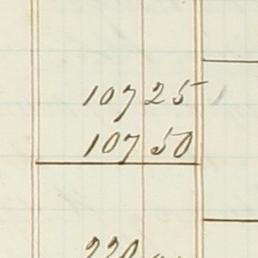 107 25
107 50